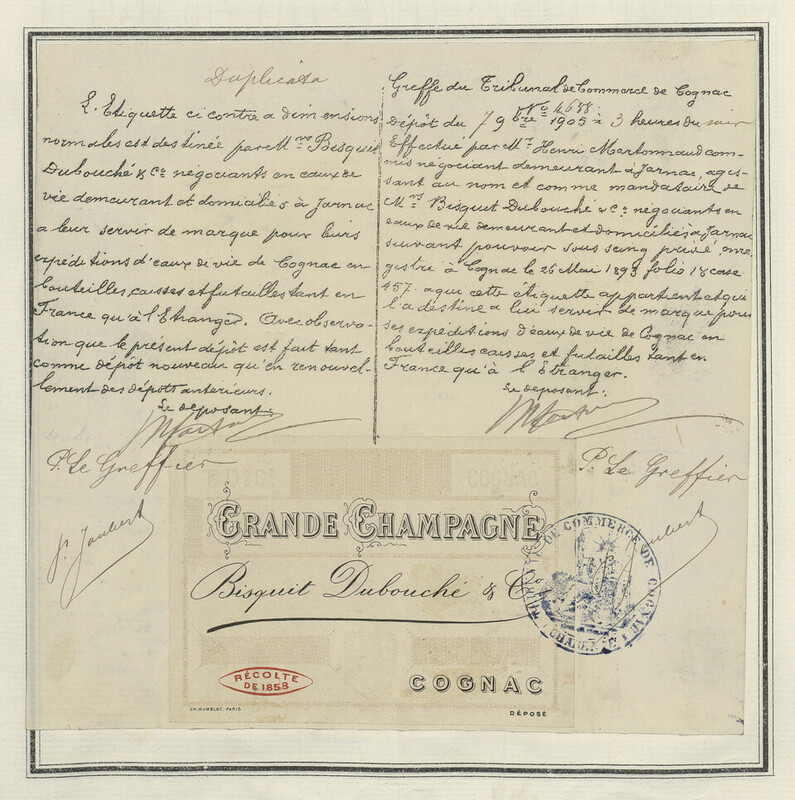 Duplicata
L'Etiquette ci contre a dimensions
normales est destinée par Mrs Bisquit
Dubouché & Co négociants en eaux de
vie demeurant et domiciliés à Jarnac
a leur servir de marque pour leurs
expéditions d'eaux de vie de Cognac en
bouteilles, caisses et futailles tant en
France qu'à l'Etranger. Avec observa-
tion que le présent dépôt est fait tant
comme dépôt nouveau qu'en renouvel-
lement des dépôts antérieurs.
Le deposant:
P. Le Greffier
J. Joubert
Greffe du Tribunal de Commerce de Cognac
No 4658.
Dépôt du 7 9bre 1905 à 3 heures du soir
Effectué par Mr Henri Martonnaud com-
mis négociant demeurant à Jarnac, agis-
sant au nom et comme mandataire de
Mrs Bisquit Dubouché & Co négociants en
eaux de vie demeurant et domiciliés à Jarnac
suivant pouvoir sous seing privé enre
gistré à Cognac le 26 Mai 1893 folio 18 case
457. a qui cette étiquette appartient et qui
l'a destine a lui servir de marque pour
ses expéditions d'eaux de vie de Cognac en
bouteilles caisses et futailles tant en
France qu'à l'Etranger.
Le deposant:
P. Le Greffier
J. Joubert
GRANDE CHAMPAGNE
Bisquit Dubouché & Co
RÉCOLTE
DE 1858
COGNAC
CH. HUMBLOT. PARIS
DÉPOSÉ
TRIBUNAL DE COMMERCE DE COGNAC